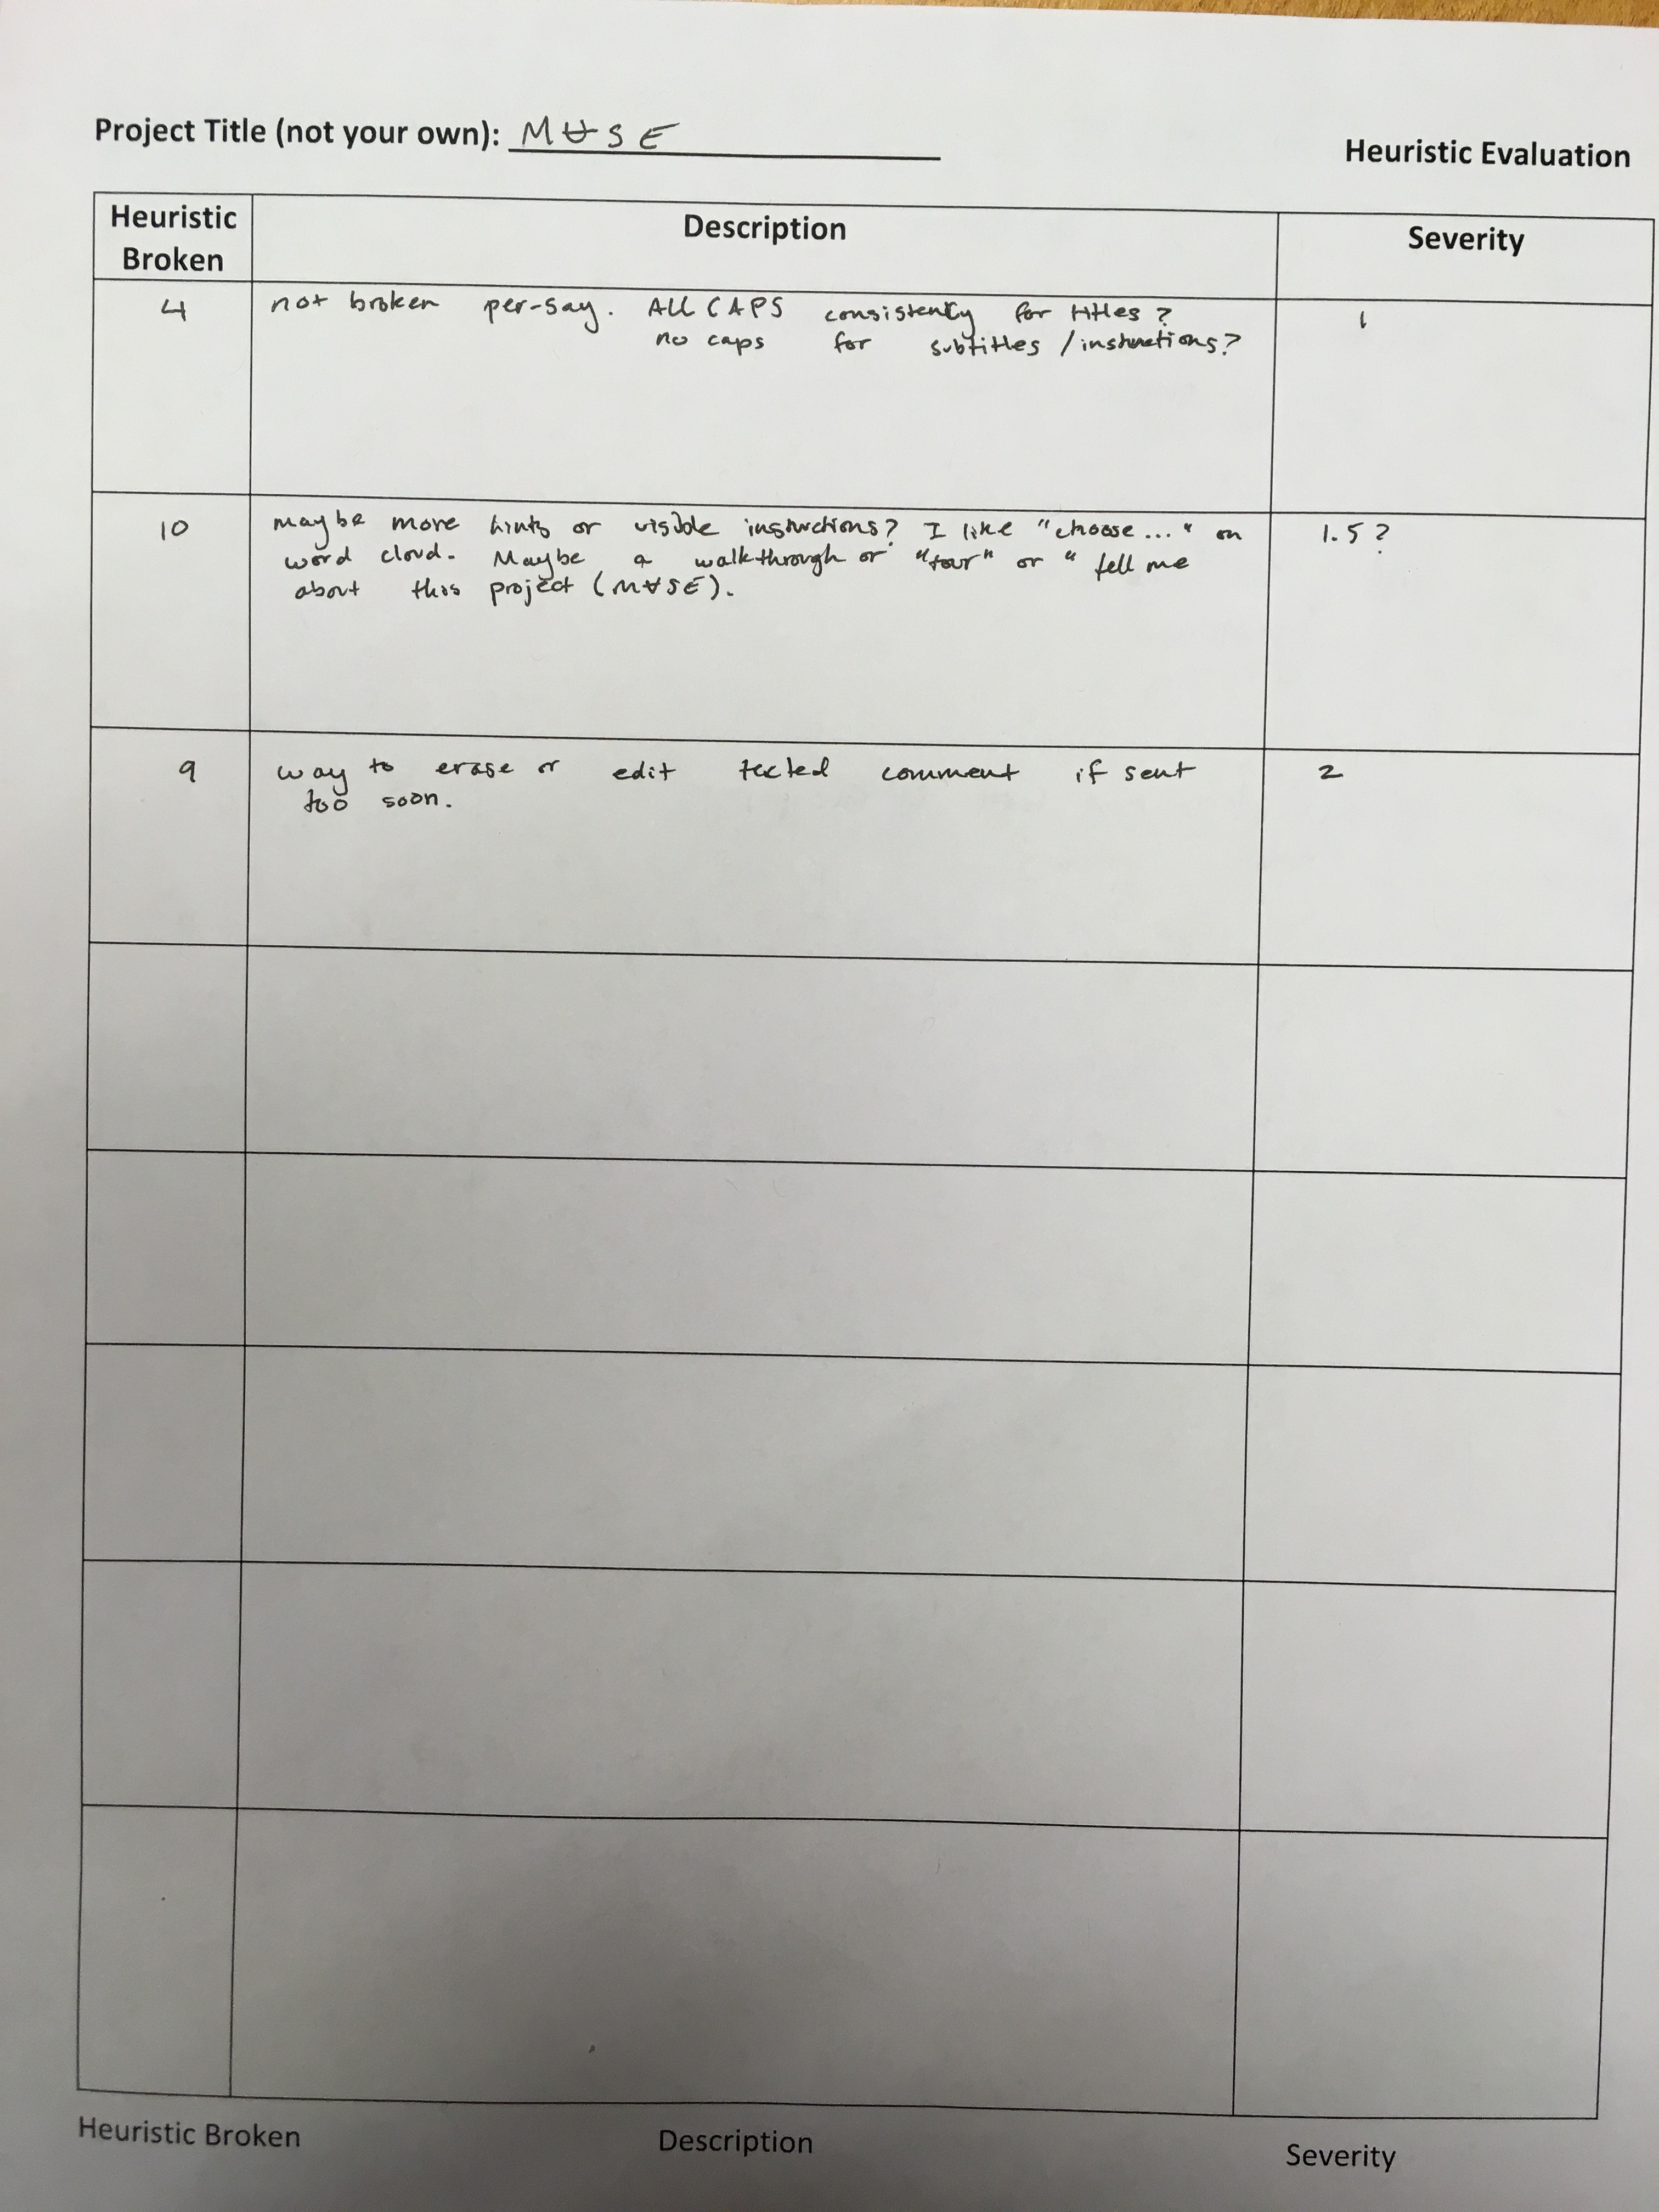 Project Title (not your own): MUSE
Heuristic Evaluation
Heuristic Broken
Description
Severity
4
not broken per-say. ALL CAPS consistently for titles?
no caps for subtitles / instructions?
1
10
maybe more hints or visible instructions? I like "choose..." on
word cloud. Maybe a walkthrough or "tour" or "tell me
about this project (M∀SE).
1.5?
9
way to erase or edit texted comment if sent
too soon.
2
Heuristic Broken
Description
Severity